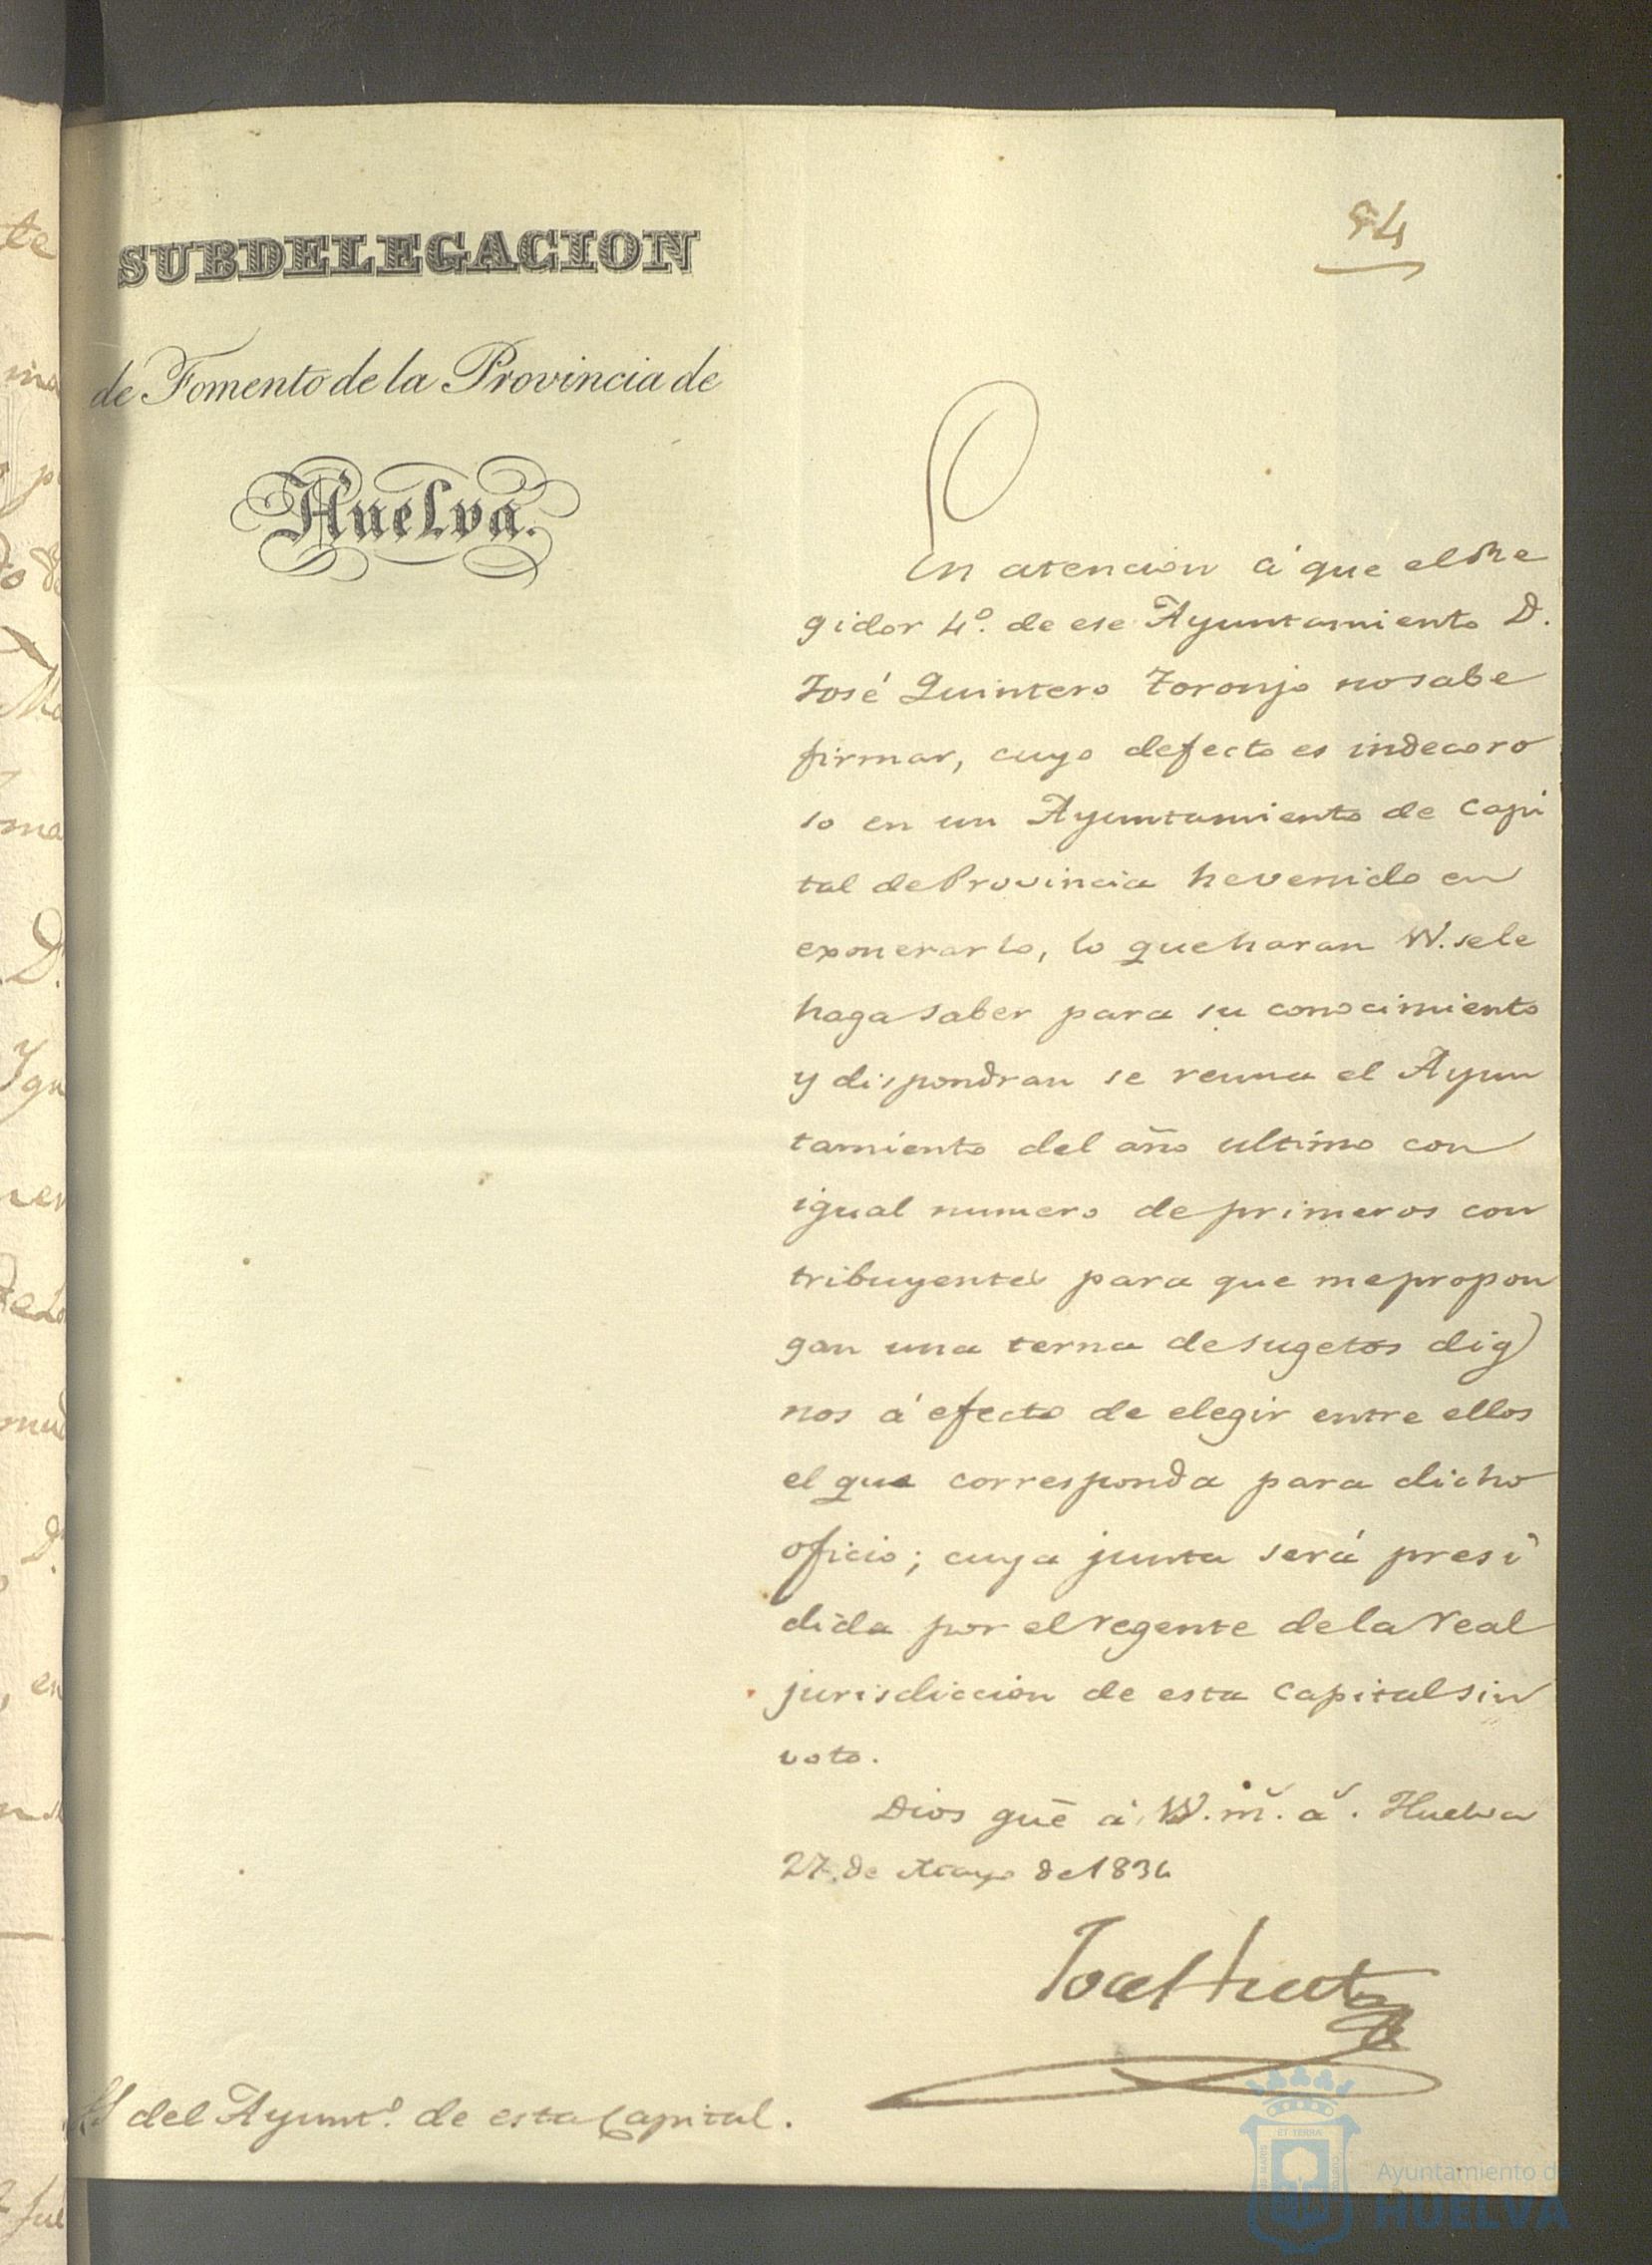 94
SUBDELEGACION
de Fomento de la Provincia de
Huelva.
En atencion á que el Re
gidor 4º. de ese Ayuntamiento D.
José Quintero Toronjo no sabe
firmar, cuyo defecto es indecoro
so en un Ayuntamiento de Capi
tal de Provincia he venido en
exonerarlo, lo que haran VV. se le
haga saber para su conocimiento
y dispondran se reuna el Ayun
tamiento del año ultimo con
igual numero de primeros con
tribuyentes para que me propon
gan una terna de sugetos dig
nos á efecto de elegir entre ellos
el que corresponda para dicho
oficio; cuya junta será presi
dida por el regente de la real
jurisdiccion de esta Capital sin
voto.
Dios gue á VV. m. a. Huelva
27. de Mayo de 1834
José Huet
del Ayuntº. de esta Capital.
Ayuntamiento de
HUELVA